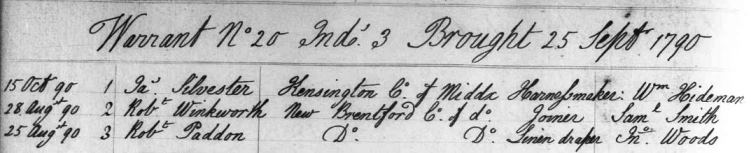 Warrant No. 20 Inds. 3 Brought 25 Septr. 1790
15 Oct 90 1 Jas. Silvester Kensington Co. of Middx Harnessmaker: Wm Hideman
28 Augst 90 2 Robt Winkworth New Brentford Co. of do. Joiner Saml Smith
25 Augst 90 3 Robt Paddon Do. Do. Linen draper Jno. Woods